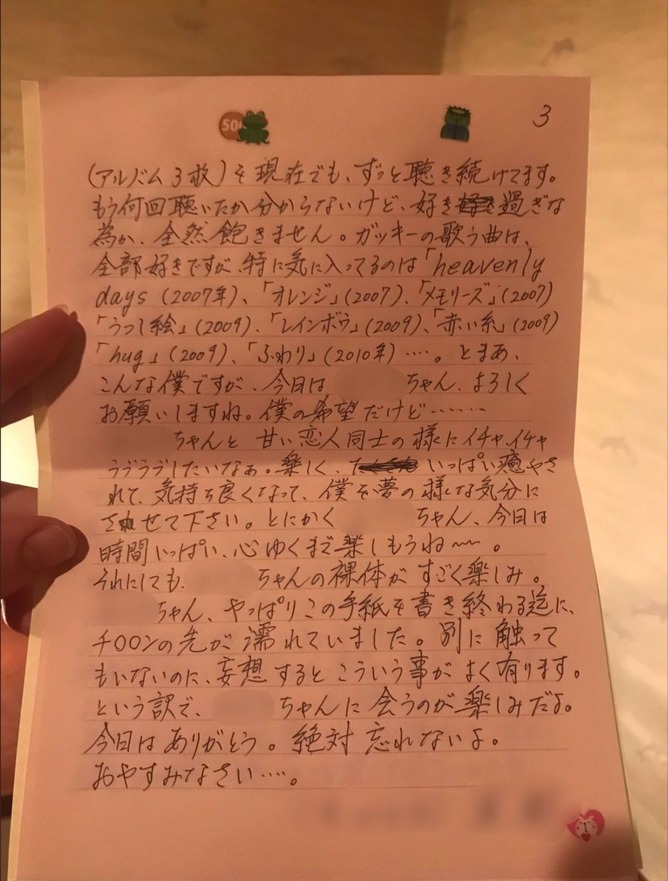 50
3
(アルバム3枚)を現在でも、ずっと聴き続けてます。
もう何回聴いたか分からないけど、好き過ぎな
為か、全然飽きません。ガッキーの歌う曲は、
全部好きですが、特に気に入ってるのは「heavenly
days(2007年)、「オレンジ」(2007)、「メモリーズ」(2007)
「うつし絵」(2009)、「レインボウ」(2009)、「赤い糸」(2009)
「hug」(2009)、「ふわり」(2010年)‥‥。とまあ、
こんな僕ですが、今日は ちゃん、よろしく
お願いしますね。僕の希望だけど‥‥‥
ちゃんと甘い恋人同士の様にイチャイチャ
ラブラブしたいなぁ。楽しく、いっぱい癒やさ
れて、気持ち良くなって、僕を夢の様な気分に
させて下さい。とにかく ちゃん、今日は
時間いっぱい、心ゆくまで楽しもうね〜〜。
それにしても、 ちゃんの裸体がすごく楽しみ。
ちゃん、やっぱりこの手紙を書き終わる迄に、
チ〇〇ンの先が濡れていました。別に触って
もいないのに、妄想するとこういう事がよく有ります。
という訳で、 ちゃんに会うのが楽しみだよ。
今日はありがとう。絶対忘れないよ。
おやすみなさい‥‥。